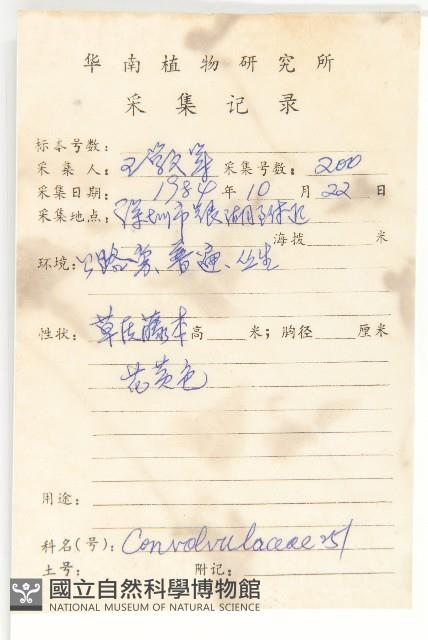 华南植物研究所
采集记录
标本号数:
采集人: 王学文等 采集号数: 200
采集日期: 1984 年 10 月 22 日
采集地点: 深圳市银湖
海拨 米
环境: 公路旁、普遍、丛生
性状: 草质藤本 高 米; 胸径 厘米
花黄色
用途:
科名(号): Convolvulaceae 251
土号: 附记:
國立自然科學博物館
NATIONAL MUSEUM OF NATURAL SCIENCE